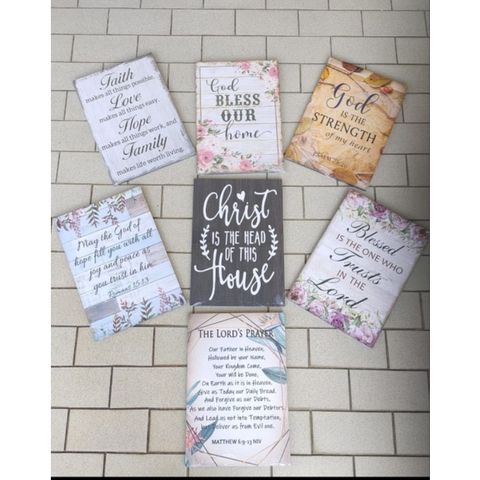 Faith
makes all things possible,
Love
makes all things easy,
Hope
makes all things work, and
Family
makes life worth living.
God
BLESS
OUR
home
God
IS THE
STRENGTH
of my heart
PSALM
May the God of
hope fill you with all
joy and peace as
you trust in him.
Romans 15:13
Christ
IS THE HEAD
OF THIS
House
Blessed
IS THE ONE WHO
Trusts
IN THE
Lord
THE LORD'S PRAYER
Our Father in Heaven,
Hallowed be your Name,
Your Kingdom Come,
Your Will be Done,
On Earth as it is in Heaven.
Give us Today our Daily Bread.
And Forgive us our Debts,
As we also have Forgive our Debtors.
And Lead us not into Temptation,
but Deliver us from Evil one.
MATTHEW 6:9-13 NIV